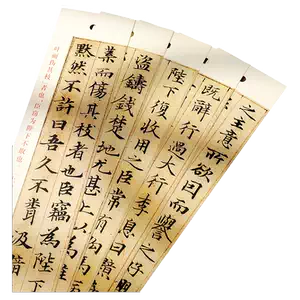 之主意所欲因而譽之好
既辭行過大行李息曰
陛下復收用之臣常有
盜鑄錢楚地尤甚上以為
葉而傷其枝者也臣竊為陛下
默然不許曰吾久不聞汲黯